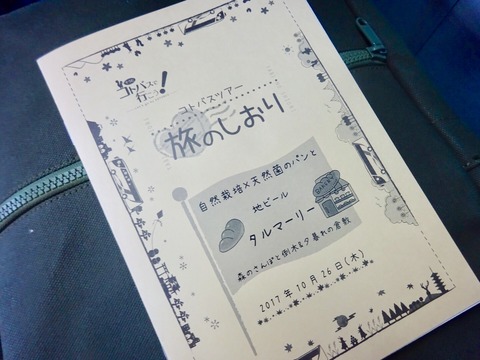 コトバスで
行こう!
コトバスツアー
旅のしおり
自然栽培×天然菌のパンと
地ビール
タルマーリー
森のさんぽと倒木&夕暮れの倉敷
2017年10月26日(木)